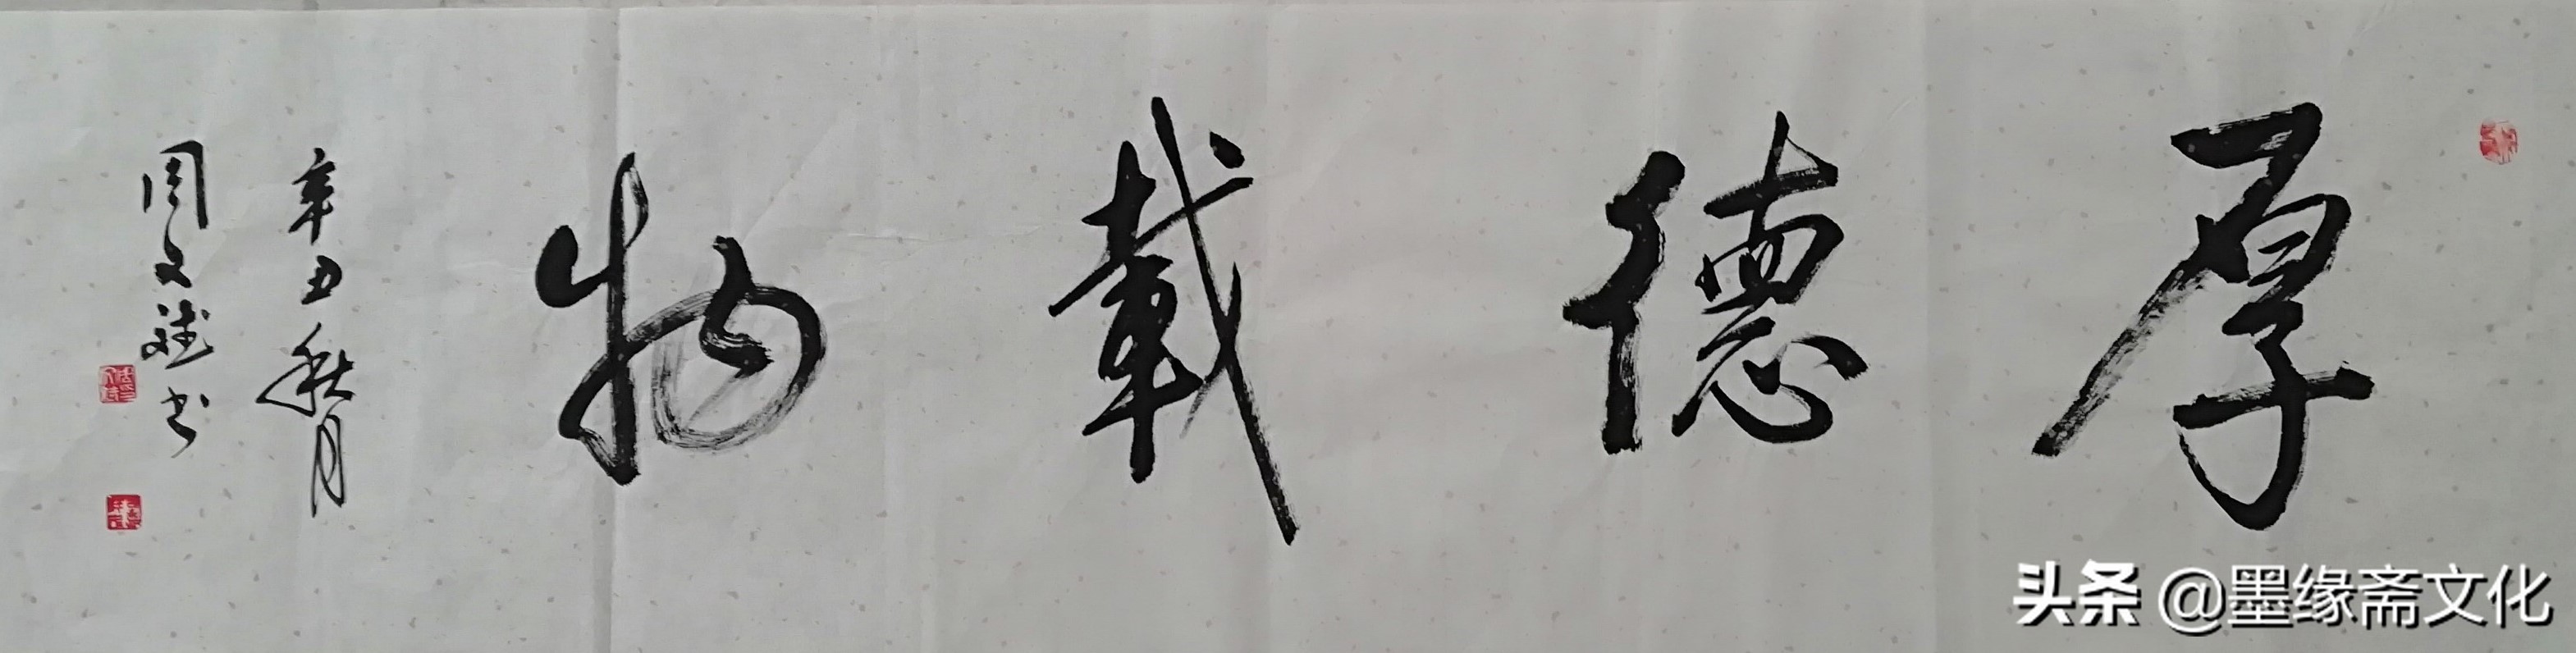 厚德載物
辛丑秋月
周文斌书
头条 @墨缘斋文化